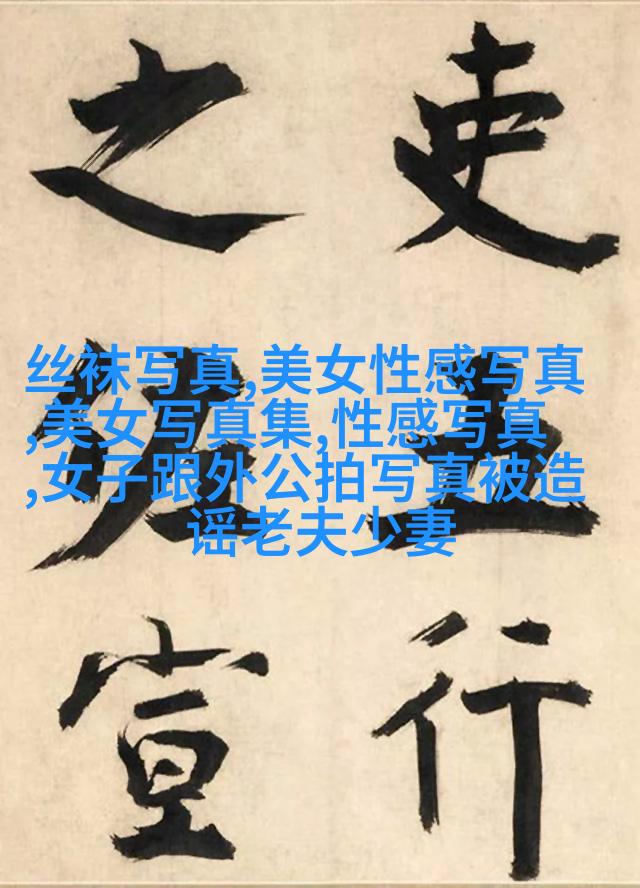 吏
行
之
宣
丝袜写真,美女性感写真
,美女写真集,性感写真
,女子跟外公拍写真被造
谣老夫少妻